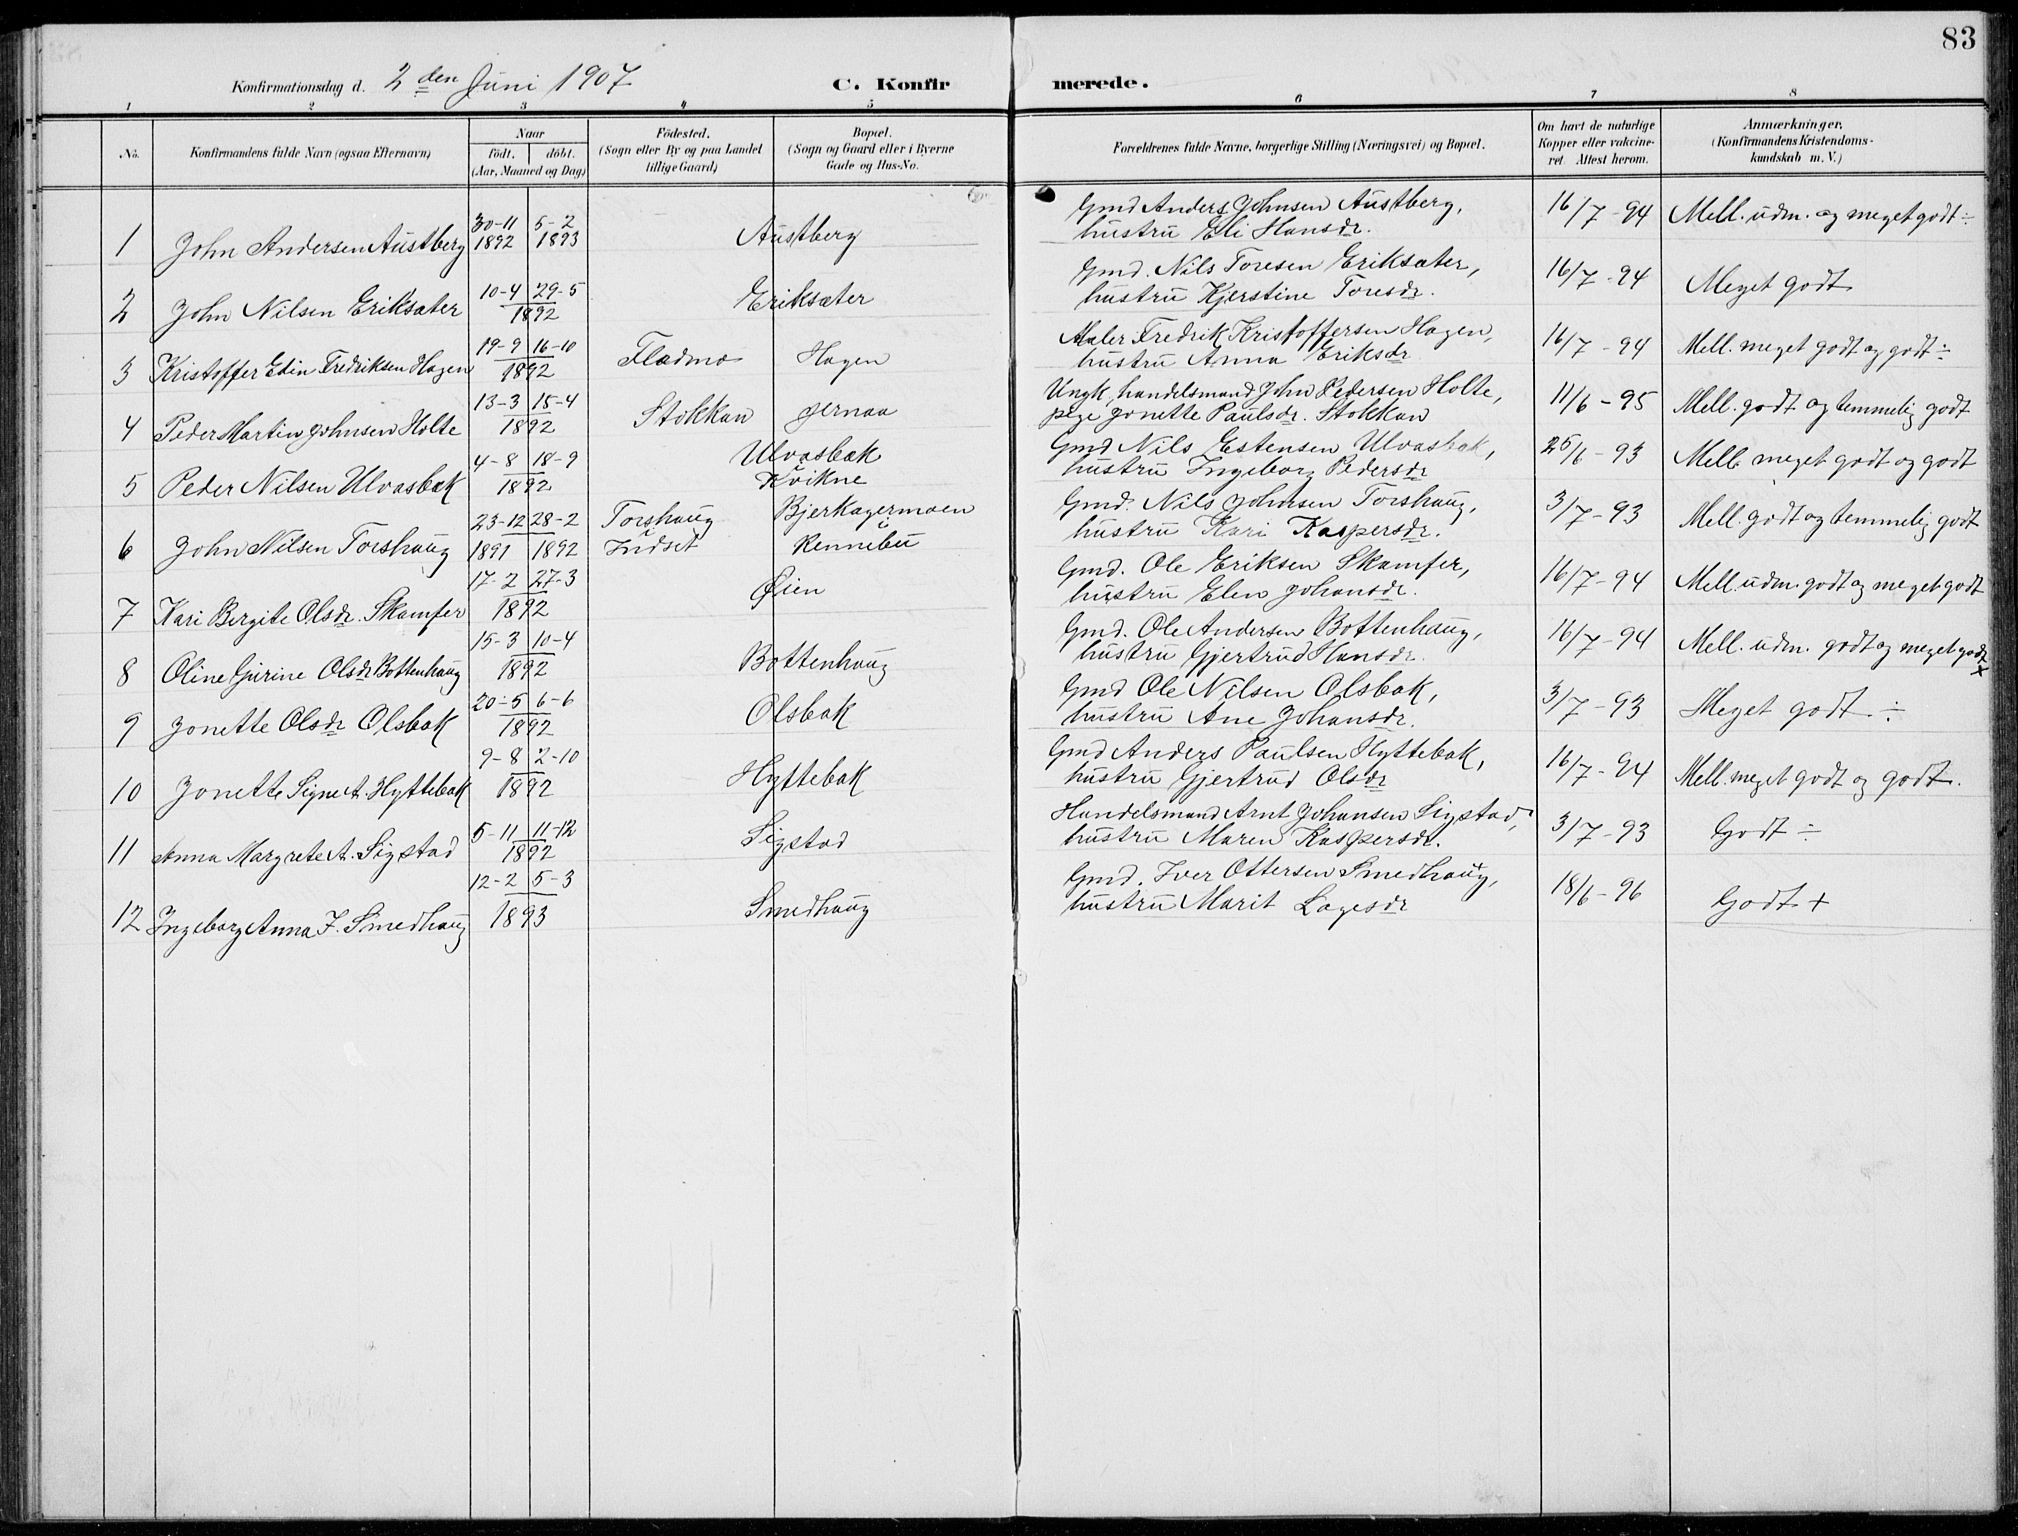 83
Konfirmationsdag d. 2den Juni 1907. C. Konfirmerede.
1 2 3 4 5 6 7 8
No. Konfirmandens fulde Navn (ogsaa Efternavn) Naar födt. döbt. (Aar, Maaned og Dag) Födested. (Sogn eller By og paa Landet tillige Gaard) Bopæl. (Sogn og Gaard eller i Byerne Gade og Hus-No. Forældrenes fulde Navne, borgerlige Stilling (Næringsvei) og Bopæl. Om havt de naturlige Kopper eller vakcineret. Attest herom. Anmærkninger, (Konfirmandens Kristendomskundskab m. V.)
1 John Andersen Austberg 30-11 1892 5-2 1893 Austberg Gmd Anders Johnsen Austberg, hustru Eli Hansdr. 16/7-94 Mell. udm. og meget godt ÷
2 John Nilsen Eriksæter 10-4 29-5 1892 Eriksæter Gmd. Nils Toresen Eriksæter, hustru Kjerstine Toresdr. 16/7-94 Meget godt
3 Kristoffer Edin Fredriksen Hagen 19-9 16-10 1892 Fladmo Hagen Maler Fredrik Kristoffersen Hagen, hustru Anna Eriksdr 16/7-94 Mell. meget godt og godt ÷
4 Peder Martin Johnsen Holte 13-3 15-4 1892 Stokkan Jernaa Ungk. handelsmand John Pedersen Holte, pige Jonette Paulsdr. Stokkan 11/6-95 Mell. godt og temmelig godt
5 Peder Nilsen Ulvasbak 4-8 18-9 1892 Ulvasbak i Kvikne Gmd Nils Estensen Ulvasbak, hustru Ingeborg Pedersdr 25/6-93 Mell. meget godt og godt
6 John Nilsen Torshaug 23-12 1891 28-2 1892 Torshaug i Indset Bjerkagermoen i Rennebu Gmd. Nils Johnsen Torshaug, hustru Kari Kaspersdr. 3/7-93 Mell. godt og temmelig godt
7 Kari Bergite Olsdr. Skamfer 17-2 27-3 1892 Øien Gmd. Ole Eriksen Skamfer, hustru Elen Johansdr. 16/7-94 Mell. udm. godt og meget godt
8 Oline Gurine Olsdr Bottenhaug 15-3 10-4 1892 Bottenhaug Gmd. Ole Andersen Bottenhaug, hustru Gjertrud Hansdr. 16/7-94 Mell. udm. godt og meget godt +
9 Jonette Olsdr Olsbak 20-5 6-6 1892 Olsbak Gmd Ole Nilsen Olsbak, hustru Ane Johansdr. 3/7-93 Meget godt. ÷
10 Jonette Signe A. Hyttebak 9-8 2-10 1892 Hyttebak Gmd Anders Paulsen Hyttebak, hustru Gjertrud Olsdr 16/7-94 Mell. meget godt og godt.
11 Anna Margrete A. Sigstad 5-11 11-12 1892 Sigstad Handelsmand Arnt Johansen Sigstad, hustru Maren Kaspersdr. 3/7-93 Godt ÷
12 Ingeborg Anna I. Smedhaug 12-2 5-3 1893 Smedhaug Gmd. Iver Ottersen Smedhaug, hustru Marit Lagesdr 18/6-96 Godt +